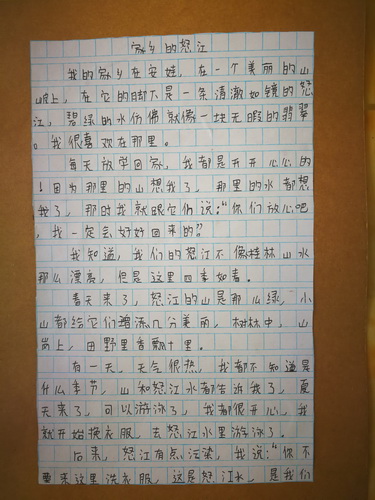 家乡的怒江
我的家乡在安娃，在一个美丽的山
坡上，在它的脚下是一条清澈如镜的怒
江，碧绿的水仿佛就像一块无暇的翡翠
。我很喜欢在那里。
每天放学回家，我都是开开心心的
！因为那里的山想我了，那里的水都想
我了，那时我就跟它们说：“你们放心吧
，我一定会好好回来的？
我知道，我们的怒江不像桂林山水
那么漂亮，但是这里四季如春。
春天来了，怒江的山是那么绿，小
山都给它们增添几分美丽，树林中，山
岗上，田野里香飘十里。
有一天，天气很热，我都不知道是
什么季节，山和怒江水都告诉我了，夏
天来了，可以游泳了，我都很开心，我
就开始换衣服，去怒江水里游泳了。
后来，怒江有点污染，我说：“你不
要来这里洗衣服，这是怒江水，是我们